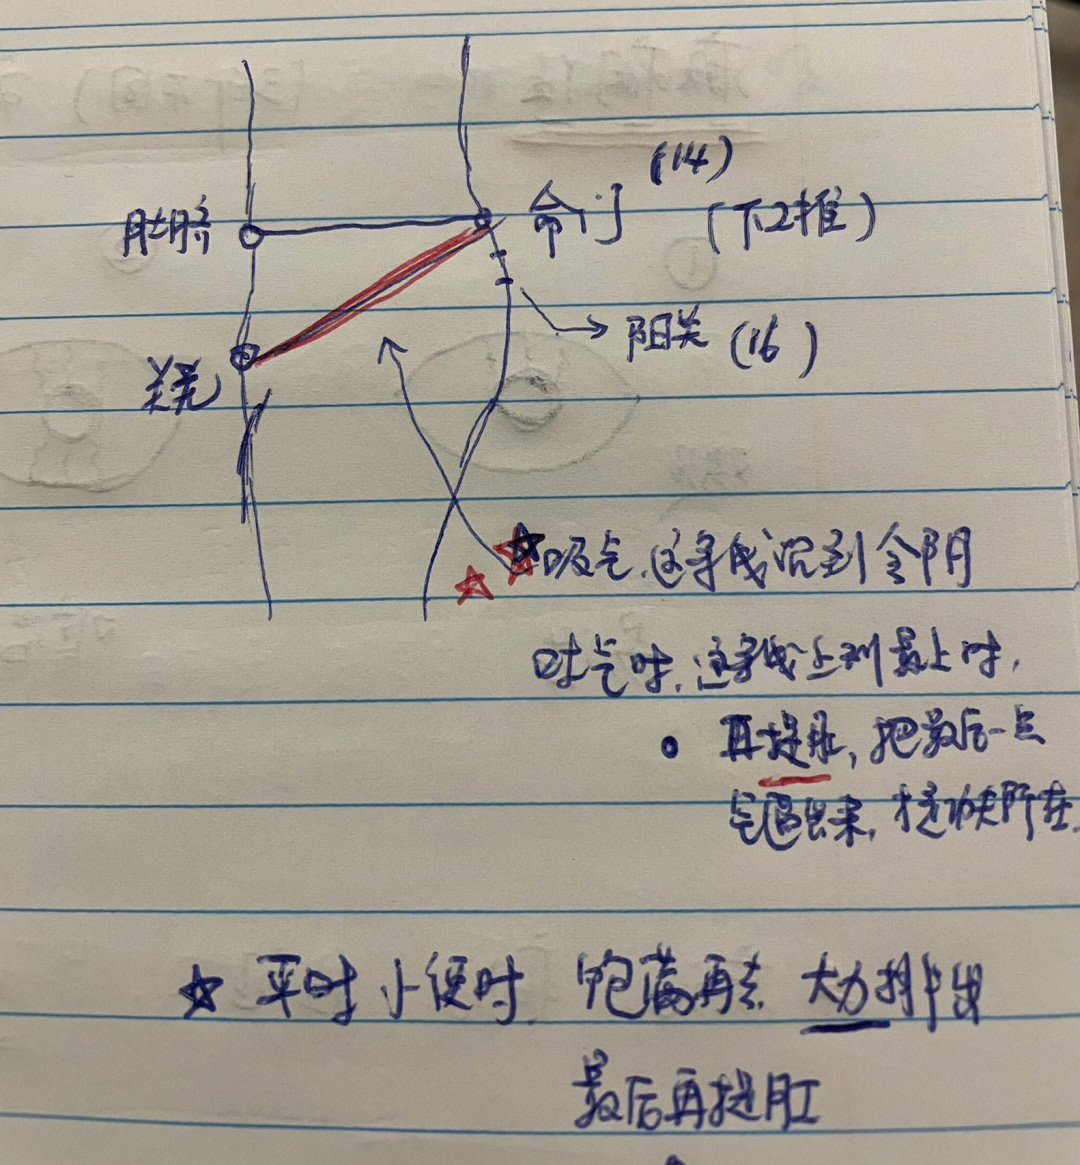 (14)
肚脐 命门 (下2推)
阳关 (16)
关元
吸气,这条线沉到会阴
吐气时,这条线上到最上时,
• 再提肛,把最后一点
气逼出来,才是功夫所在.
☆ 平时小便时 饱满再去 大力排出
最后再提肛